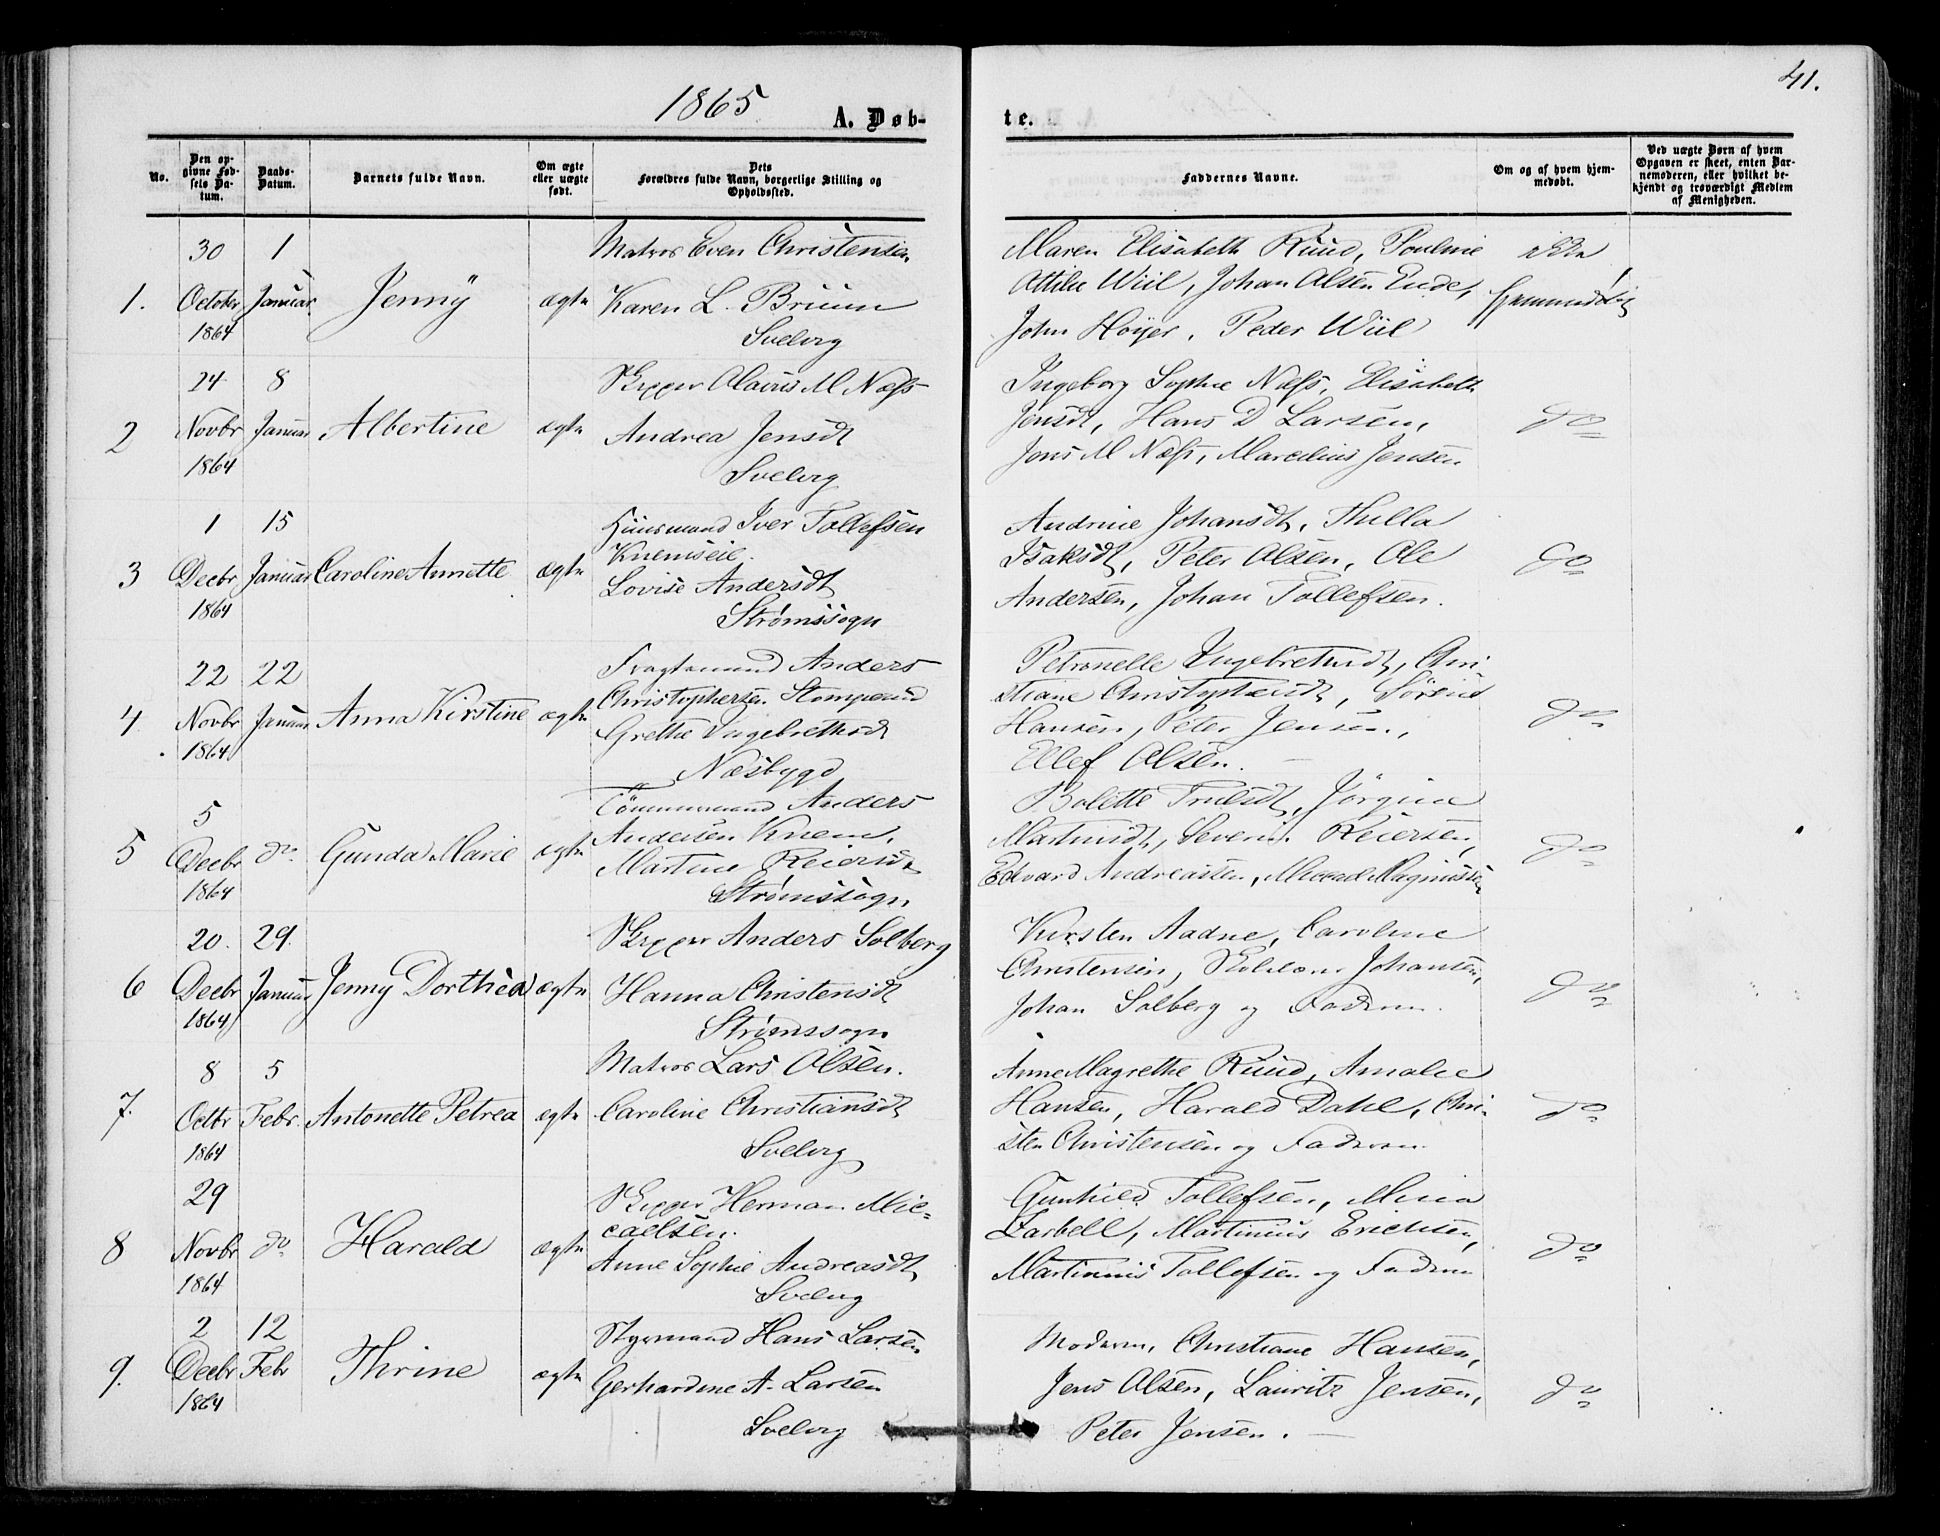 1865
A. Døb-
te.
41.
No.
Den op-
givne Fød-
sels Da-
tum.
Daabs-
Datum.
Barnets fulde Navn.
Om ægte
eller uægte
født.
Dets
Forældres fulde Navn, borgerlige Stilling og
Opholdssted.
Faddernes Navne.
Om og af hvem hjem-
medøbt.
Ved uægte Børn af hvem
Opgaven er skeet, enten Bar-
nemoderen, eller hvilket be-
kjendt og troværdigt Medlem
af Menigheden.
1.
30
October
1864
1
Januar
Jenny
ægte
Matros Even Christensen
Karen L. Bruun
Svelvig
Maren Elisabeth Ruud, Pouline
Attilie Wiil, Johan Olsen Ende,
John Høyer, Peder Wiil
ikke
hjemmedøbt
2
24
Novbr
1864
8
Januar
Albertine
ægte
Skipper Olavus M Næss
Andrea Jensdt
Svelvig
Ingeborg Sophie Næss, Elisabeth
Jensdt, Hans D Larsen,
Jens M Næss, Marelius Jensen
do
3
1
Decbr
1864
15
Januar
Caroline Annette
ægte
Huusmand Iver Tollefsen
Knemseie.
Lovise Andersdt
Strømssogn
Andrine Johansdt, Thulla
Isaksdt, Peter Olsen, Ole
Andersen, Johan Tollefsen.
do
4
22
Novbr
1864
22
Januar
Anna Kirstine
ægte
Fragtemand Anders
Christophersen Stomperud
Grethe Ingebrethsdt
Næsbygd
Petronelle Ingebrethsdt, Chri-
stiane Christophersdt, Sørend
Hansen, Peter Jensen,
Ellef Olsen.
do
5
5
Decbr
1864
do
Gunda Marie
ægte
Tömmermand Anders
Andersen Knem.
Martine Reiersdt
Strømssogn
Bolette Trulsdt, Jørgine
Martinsdt, Severin Reiersen,
Edvard Andreassen, Magnussen
do
6
20.
Decbr
1864
29.
Januar
Jenny Dorthea
ægte
Skipper Anders Solberg
Hanna Christensdt
Strømssogn
Kirsten Aadne, Caroline
Christensen, Johansen,
Johan Solberg og Faderen.
do
7.
8
Octbr
1864
5
Febr.
Antonette Petrea
ægte
Matros Lars Olsen.
Caroline Christiansdt
Svelvig
Anne Magrethe Ruud, Amalie
Hansen, Harald Dahl, Chri-
sten Christensen og Faderen.
do
8
29
Novbr
1864
do
Harald
ægte
Skipper Herman Mic-
caelsen.
Anne Sophie Andreasdt
Svelvig
Gunhild Tollefsen, Mina
Zarbell, Martinius Erichsen,
Martinius Tollefsen og Faderen
do
9.
2
Decbr
1864
12
Febr
Thrine
ægte
Styrmand Hans Larsen
Gerhardine A. Larsen
Svelvig
Moderen, Christiane Hansen,
Jens Olsen, Lauritz Jensen,
Peter Jensen.
do